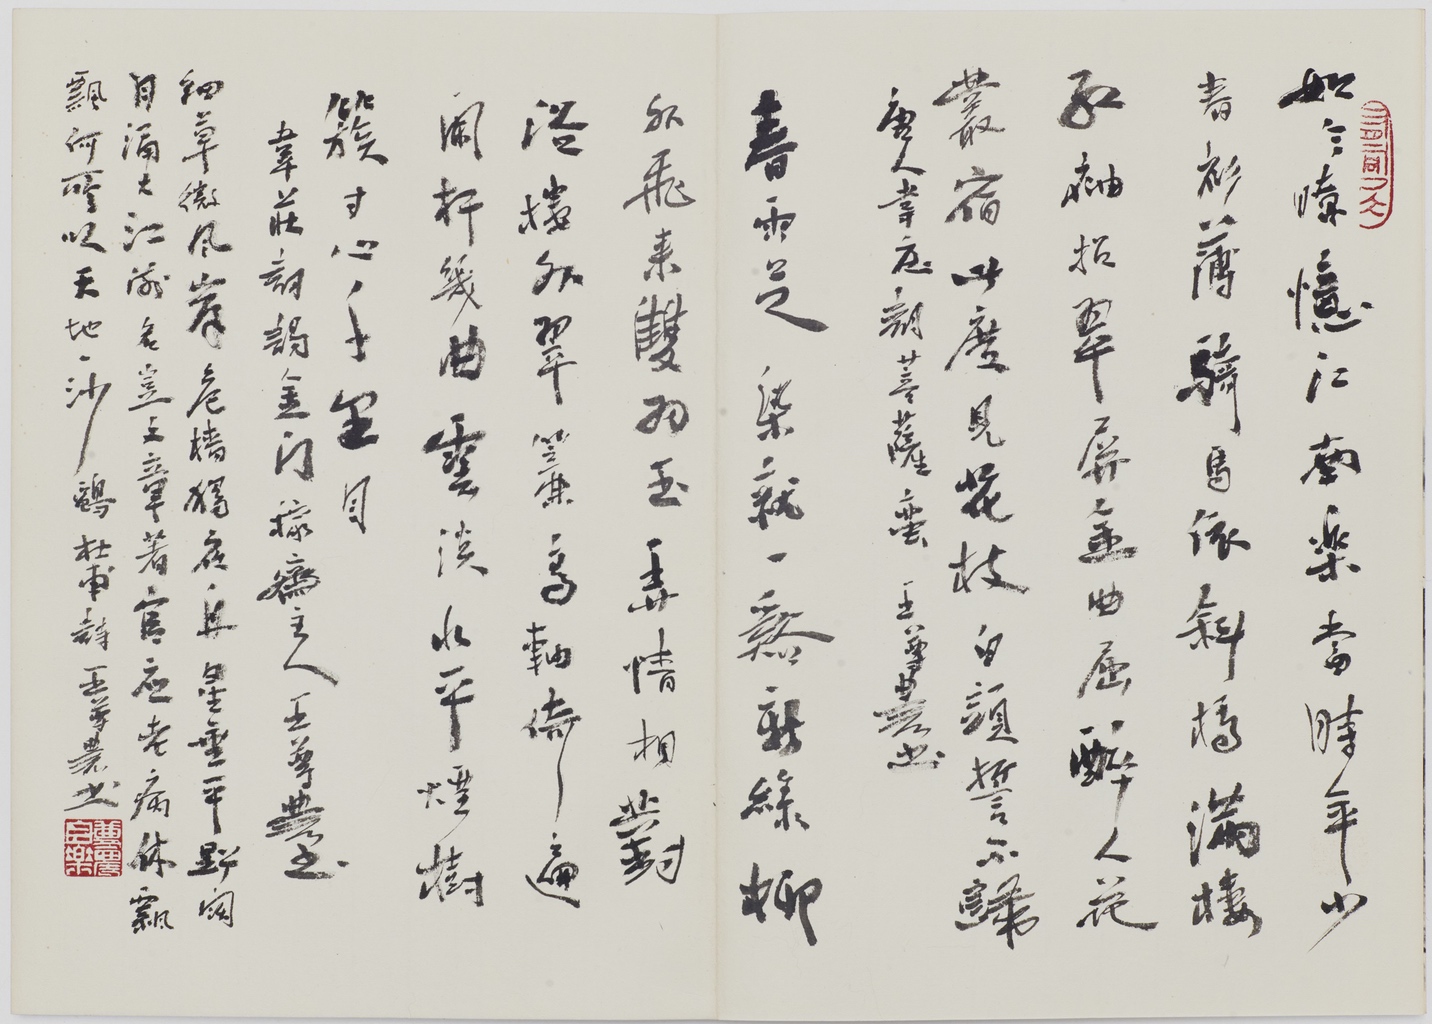 如今憶江南樂當時年少
春衫薄騎馬依斜橋滿樓
紅袖招翠屏金曲屈醉人花
叢宿此度見花枝白頭誓不歸
唐人韋庄詞菩薩蛮 王尊農书
春雨足 染就一谿新綠柳
外飛來雙羽玉弄情相對
浴樓外翠簾高軸倚遍
闌杆幾曲雲淡水平煙樹
簇寸心千里目
韋莊詞謁金门 齋主人 王尊農书
細草微風岸危檣獨夜舟星垂平野阔
月涌大江流名豈文章著官应老病休飄
飄何所似天地一沙鷗 杜甫詩 王尊農书